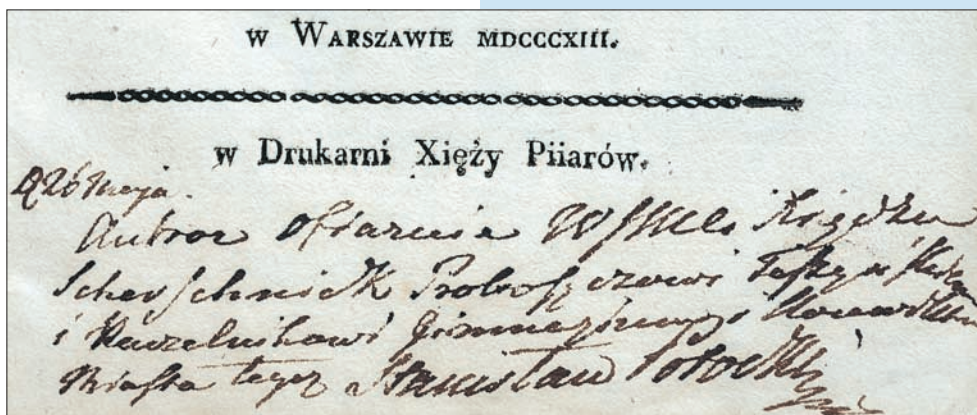 w WARSZAWIE MDCCCXIII.
w Drukarni Xięży Piiarów.
D 26 Maja.
Autor ofiaruie Xiędzu
Scherschnick Proboszczowi
i Naczelnikowi Gimnazium
Miasta tegoż Stanisław Potocki